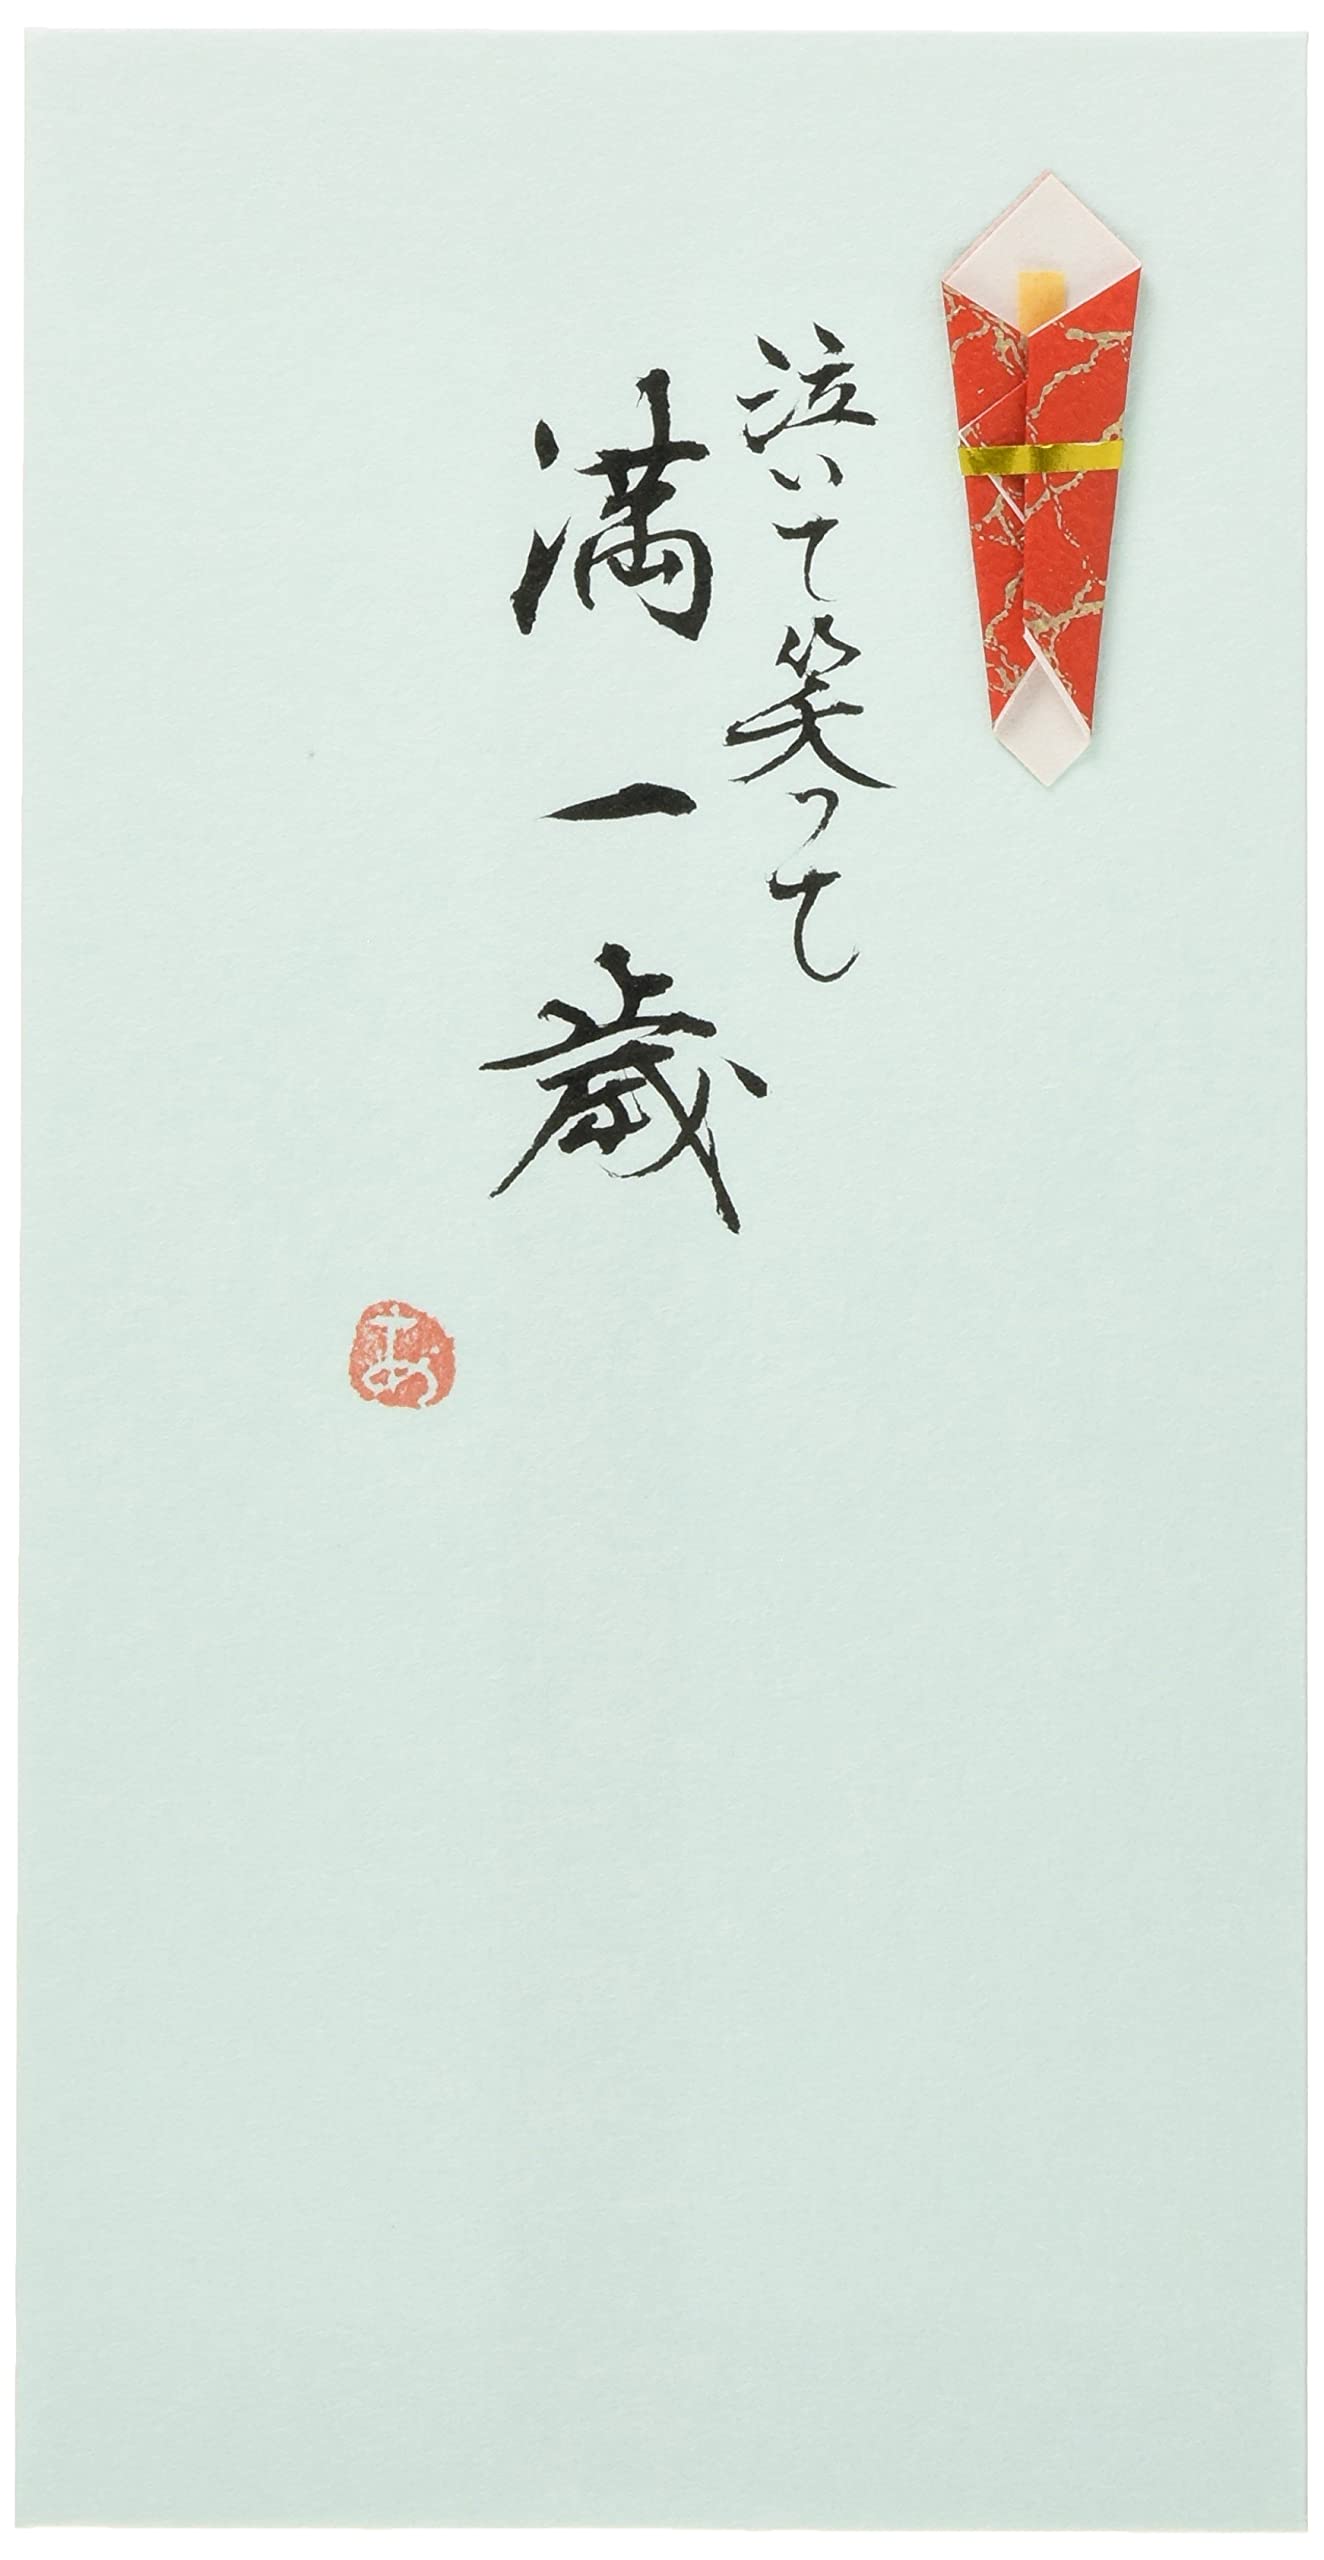 泣いて笑って
満一歳
あ